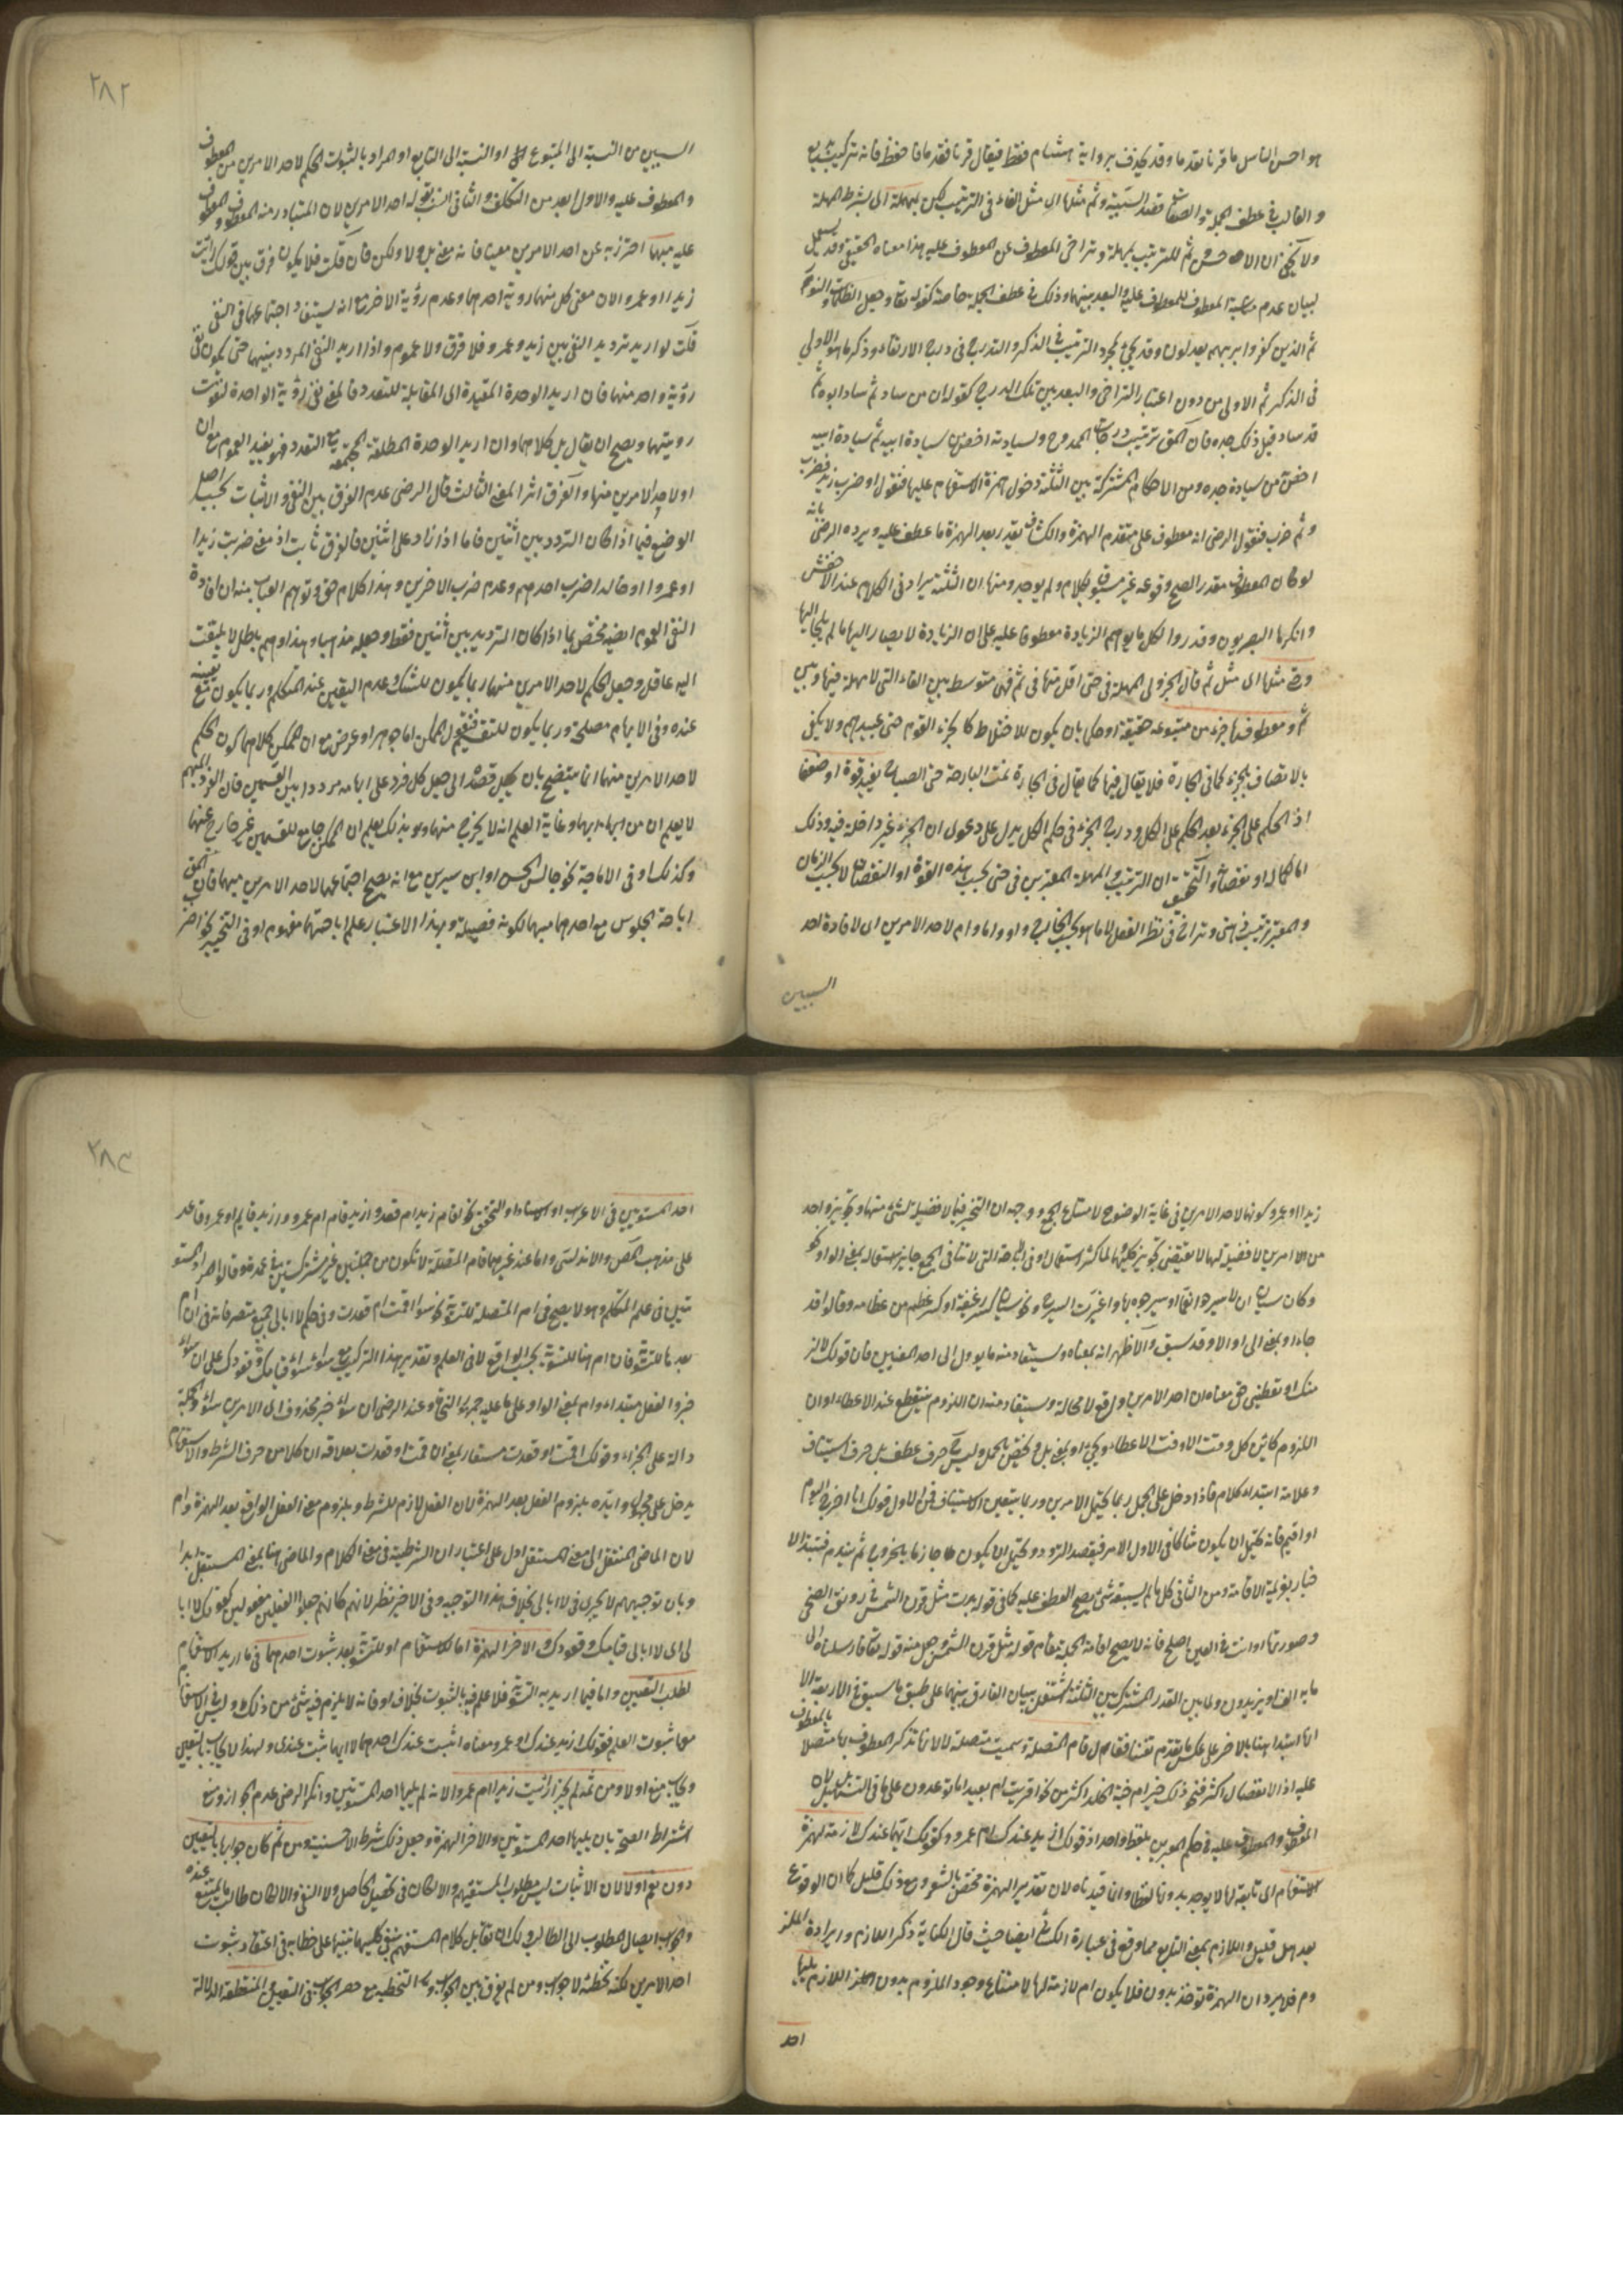 هو احسن الناس ما قرنا فقدما وقد يحذف برواية هشام فقط فيقال قرنا فقدما فاحفظ فانه تركيب بديع
و الغالب في عطف الجملة والصفات قصد السببية وثم مثلها اي مثل الفاء في الترتيب لكن بمهلة اي بشرط المهلة
ولا يخفى ان ثم للترتيب بمهلة وتراخى المعطوف عن المعطوف عليه هذا معناه الحقيقي وقد يستعمل
لبيان عدم مناسبة المعطوف للمعطوف عليه والبعد بينهما وذلك في عطف الجملة خاصة كقوله تعالى وجعل الظلمات والنور
ثم الذين كفروا بربهم يعدلون وقد يجيء لمجرد الترتيب في الذكر والتدرج في درج الارتقاء وذكر ما هو الاولى
في الذكر ثم الاولى من دون اعتبار التراخى والبعد بين تلك الدرج كقوله ان من ساد ثم ساد ابوه ثم
قد ساد قبل ذلك جده فان الحق ترتيب درجات الممدوح ولسيادته اخص من سيادة ابيه ثم سيادة ابيه
اخص من سيادة جده ومن الاحكام المشتركة بين الثلثة دخول همزة الاستفهام عليها فتقول اوضرب زيد فضرب
وثم ضرب فنقول الرضى انه معطوف على متقدم الهمزة والكشاف يقدر بعد الهمزة ما عطف عليه ويرده الرضى بانه
لو كان المعطوف مقدرا لصح وقوعه غير مسبوق بكلام ولم يوجد ومنها ان الثلثة يزاد في الكلام عند الاخفش
وانكرها البصريون وقدروا لكل ما يوهم الزيادة معطوفا عليه على ان الزيادة لا يصار اليها ما لم يلجأ اليها
وحتى مثلها اى مثل ثم قال الجزولى المهلة في حتى اقل منها في ثم فهي متوسط بين الفاء التي لا مهلة فيها وبين
ثم ومعطوفها جزء من متبوعه حقيقة او حكما بان يكون للاختلاط كالجزء القوم حتى عبيدهم ولا يكفى
بالاتصاف بالجزء كما في الجارة فلا يقال فيها كما يقال في الجارة نمت البارحة حتى الصباح ليفيد قوة او ضعفا
اذ الحكم على الجزء بعد الحكم على الكل ودرج الجزء في حكم الكل يدل على دعوى ان الجزء غير داخلة فيه وذلك
اما لكماله او نقصانه والتحقيق ان الترتيب والمهلة المعتبرين في حتى بحسب هذه القوة او النقصان لا بحسب الزمان
والمعتبر ترتيب في حتى وتراخ في نظر العقل لا ما هو بحسب الخارج واو واما وام لاحد الامرين اى لافادة احد
السببين
٢٨٢
السببين من النسبة الى المتبوع او النسبة الى التابع او المراد بالثبوت الحكم لاحد الامرين من المعطوف
والمعطوف عليه والاول ابعد من التكلف والثاني انسب بقوله احد الامرين لان المتبادر منه المعطوف والمعطوف
عليه مبهما احترز به عن احد الامرين معينا فانه معنى بل ولا ولكن فان قلت فلا يكون فرق بين قولك رايت
زيدا او عمروا لان معنى كل منهما روية احدهما وعدم رؤية الاخر مع انه يستفاد اجتماعهما في النفى
قلت لو اريد ترديد النفى بين زيد وعمرو فلا فرق ولا عموم واذا اريد النفى المردد بينهما حتى يكون نفى
رؤية واحد منهما فان اريد الوحدة المقيدة اى المقابلة للتعدد فالمعنى نفى رؤية الواحدة لثبوت
رويتهما ويصح ان يقال بل كلاهما وان اريد الوحدة المطلقة المجتمعة مع التعدد فهو يفيد العموم مع ان
او لاحد الامرين منهما والفرق اثر المعنى الثالث قال الرضى عدم الفرق بين النفى والاثبات بحسب اصل
الوضع فيما اذا كان التردد بين اثنين فاما اذا زاد على اثنين فالفرق ثابت اذ معنى ضربت زيدا
او عمروا او خالدا ضرب احدهم وعدم ضرب الاخرين وهذا كلام حق وتوهم العباب منه ان افادة
النفى العموم ايضا مختص بما اذا كان الترديد بين اثنين فقط وجعله مذهبا وهذا وهم باطل لا يلتفت
اليه عاقل وجعل الحكم لاحد الامرين منهما ربما يكون للشك وعدم اليقين عند المتكلم وربما يكون مع تعينه
عنده وفي الابهام مصلحة وربما يكون للتقسيم فتقول الممكن اما جوهر او عرض مع ان الممكن كلاهما لكون الحكم
لاحد الامرين منهما انما يتضح بان يجعل قصدا الى جعل كل فرد على ابهامه مرددا بين القسمين فان الفرد المبهم
لا يعلم ان من ايهما ايهما وغاية العلم انه لا يخرج منهما وبذلك يعلم ان الممكن جامع للقسمين غير خارج عنهما
وكذلك او في الاباحة نحو جالس الحسن او ابن سيرين مع انه يصح اجتماعهما لاحد الامرين مبهما فان الحق
اباحة الجلوس مع احدهما مبهما لكونه فضيلة وبهذا الاعتبار علم اباحتهما مفهوم او في التخيير نحو اضرب
زيدا او عمروا كونها لاحد الامرين في غاية الوضوح لامتناع الجمع ووجه ان التخيير فيما لا فضيلة لشئ منهما وتجويز واحد
من الامرين لا فضيلة لهما لا يقتضى تجويز كليهما لما كثر استعمال او في الاباحة التي لا تنافى الجمع جاز استعماله بمعنى الواو نحو
وكان سيان ان لا يسرحوا نعما او يسرحوه بها واغبرت السوح ونحو سيان كسر رغيفه او كسر عظم من عظامه وقالوا قد
جاء او بمعنى الى او الا وقد سبق والاظهر انه بمعناه ويستفاد منه ما يؤول الى احد المعنيين فان قولك لالزمنك
منك او تعطينى حقى معناه ان احد الامرين واقع لا محالة ويستفاد منه ان اللزوم ينقطع عند الاعطاء او ان
اللزوم كائن كل وقت الا وقت الاعطاء ويجيء او بمعنى بل ويختص بالجمل وليس ح حرف عطف بل حرف استيناف
وعلامة ابتداء كلام فاذا دخل على الجمل ربما يحتمل الامرين وربما يتعين الاستيناف فمن الاول قولك انا اخرج اليوم
او اقيم فانه يحتمل ان يكون شاكا في الاول الامر فيقصد التردد ويحتمل ان يكون جازما بالخروج ثم يندم فيبتدأ الا
خبار بعزيمة الاقامة ومن الثاني كل ما لم يسبقه شئ يصح العطف عليه كما في قوله بدت مثل قرن الشمس في رونق الضحى
وصورتها او انت في العين املح فانه لا يصح اقامة الجملة مقام قوله مثل قرن الشمس وجعل منه قوله تعالى فارسلناه الى
ماية الف او يزيدون ولما بين القدر المشترك بين الثلثة اشتغل ببيان الفارق بينهما على طبق ما سبق في الاربعة الا
انه ابتدأ هنا بالاخر على عكس ما تقدم تفننا فقال ام المتصلة وسميت متصلة لانها تذكر المعطوف بها متصلا بالمعطوف
عليه اذ الانفصال اكثر فنحو ذلك خير ام جنة الخلد اكثر من نحو اقريب ام بعيد ما توعدون على ما في التسهيل بل لان
المعطوف والمعطوف عليه في حكم المعبرين بلفظ واحد اذ قولك ازيد عندك ام عمرو كقولك ايهما عندك لازمة لهمزة
الاستفهام اى تابعة لها لا يوجد بدونها لفظا وانما قيدناه لان تقدير الهمزة مختص بالشعر ومع ذلك قليل كان الوقوع
بعد هل قليل واللازم بمعنى التابع مما وقع في عبارة الكشاف ايضا حيث قال الكناية ذكر اللازم وارادة الملزوم
وم فلا يرد ان الهمزة توخذ بدون فلا يكون ام لازمة لها لامتناع وجود الملزوم بدون اللازم يليها
احد
٢٨٣
احد المستويين في الاعراب او الاسناد والتحقق نحو اقام زيد ام قعد وازيد قام ام عمرو وازيد قايم او عمرو قاعد
على مذهب المص والاندلسى واما عند غيرهما فام المتصلة لا تكون من جملتين غير مشتركتين في عمدة وقالوا احد المستو
يين في علم المتكلم وهو لا يصح في ام المتصلة للتسوية نحو سواء اقمت ام قعدت وفي حكم لا ابالى جميع متصرفاته فى ان ام
بعدها للتسوية فان ام هنا للتسوية بحسب الواقع لا في العلم وتقدير هذا التركيب مع سواء قيامك وقعودك على ان سواء
خبر والفعل مبتداء وام بمعنى الواو على ما عليه جمهور النحاة وعند الرضى ان سواء خبر محذوف اى الامرين سواء والجملة
دالة على الجزاء وقولك اقمت او قعدت مستعار بمعنى ان قمت او قعدت بعلاقة ان كلا من حرف الشرط والاستفهام
يدخل على مجهول وايده بلزوم الفعل بعد الهمزة لان الفعل لازم للشرط وبلزوم معنى الفعل الواقع بعد الهمزة وام
لان الماضى المنتقل الى معنى المستقبل ادل على اعتبار ان الشرطية في معنى الكلام والماضى هنا بمعنى المستقبل ابدا
وبان توجيههم لا يجرى في لا ابالى بخلاف هذا التوجيه وفي الاخير نظر لانهم كانهم جعلوا الفعلين مفعولين كقولك لا ابا
لى اى لا ابالى قيامك وقعودك والاخر الهمزة اما للاستفهام او للتسوية بعد ثبوت احدهما في ما اريد الاستفهام
لطلب التعيين واما فيما اريد به التسوية فلا علم فيه بالثبوت بخلاف او فانه لا يلزم فيه شئ من ذلك وليس في الاستفهام
معها ثبوت العلم فقولك ازيد عندك او عمرو معناه اثبت عندك احدهما لا ايهما ثبت عندى ولهذا لا يجاب بالتعيين
ويجاب بنعم او لا ومن ثمه لم يجز ارأيت زيدا ام عمروا لانه لم يليها احد المستويين وانكر الرضى عدم الجواز ومنع
اشتراط الصحة بان يليها احد المستويين والاخر الهمزة وجعل ذلك شرط الاحسنية ومن ثم كان جوابها بالتعيين
دون نعم او لا لان الاثبات ليس مطلوب المستفهم والا لكان في تحصيل الحاصل ولا النفى والا لكان طالبا لما يمتنع عنده
والجواب ايصال المطلوب الى الطالب ولك ان تقابل كلام المستفهم بنفى كليهما تنبيها على خطايه في اعتقاد ثبوت
احد الامرين لكنه تخطئة لا جواب ومن لم يفرق بين الجواب والتخطئة منع حصر الجواب في التعيين والمنقطعة الدلالة